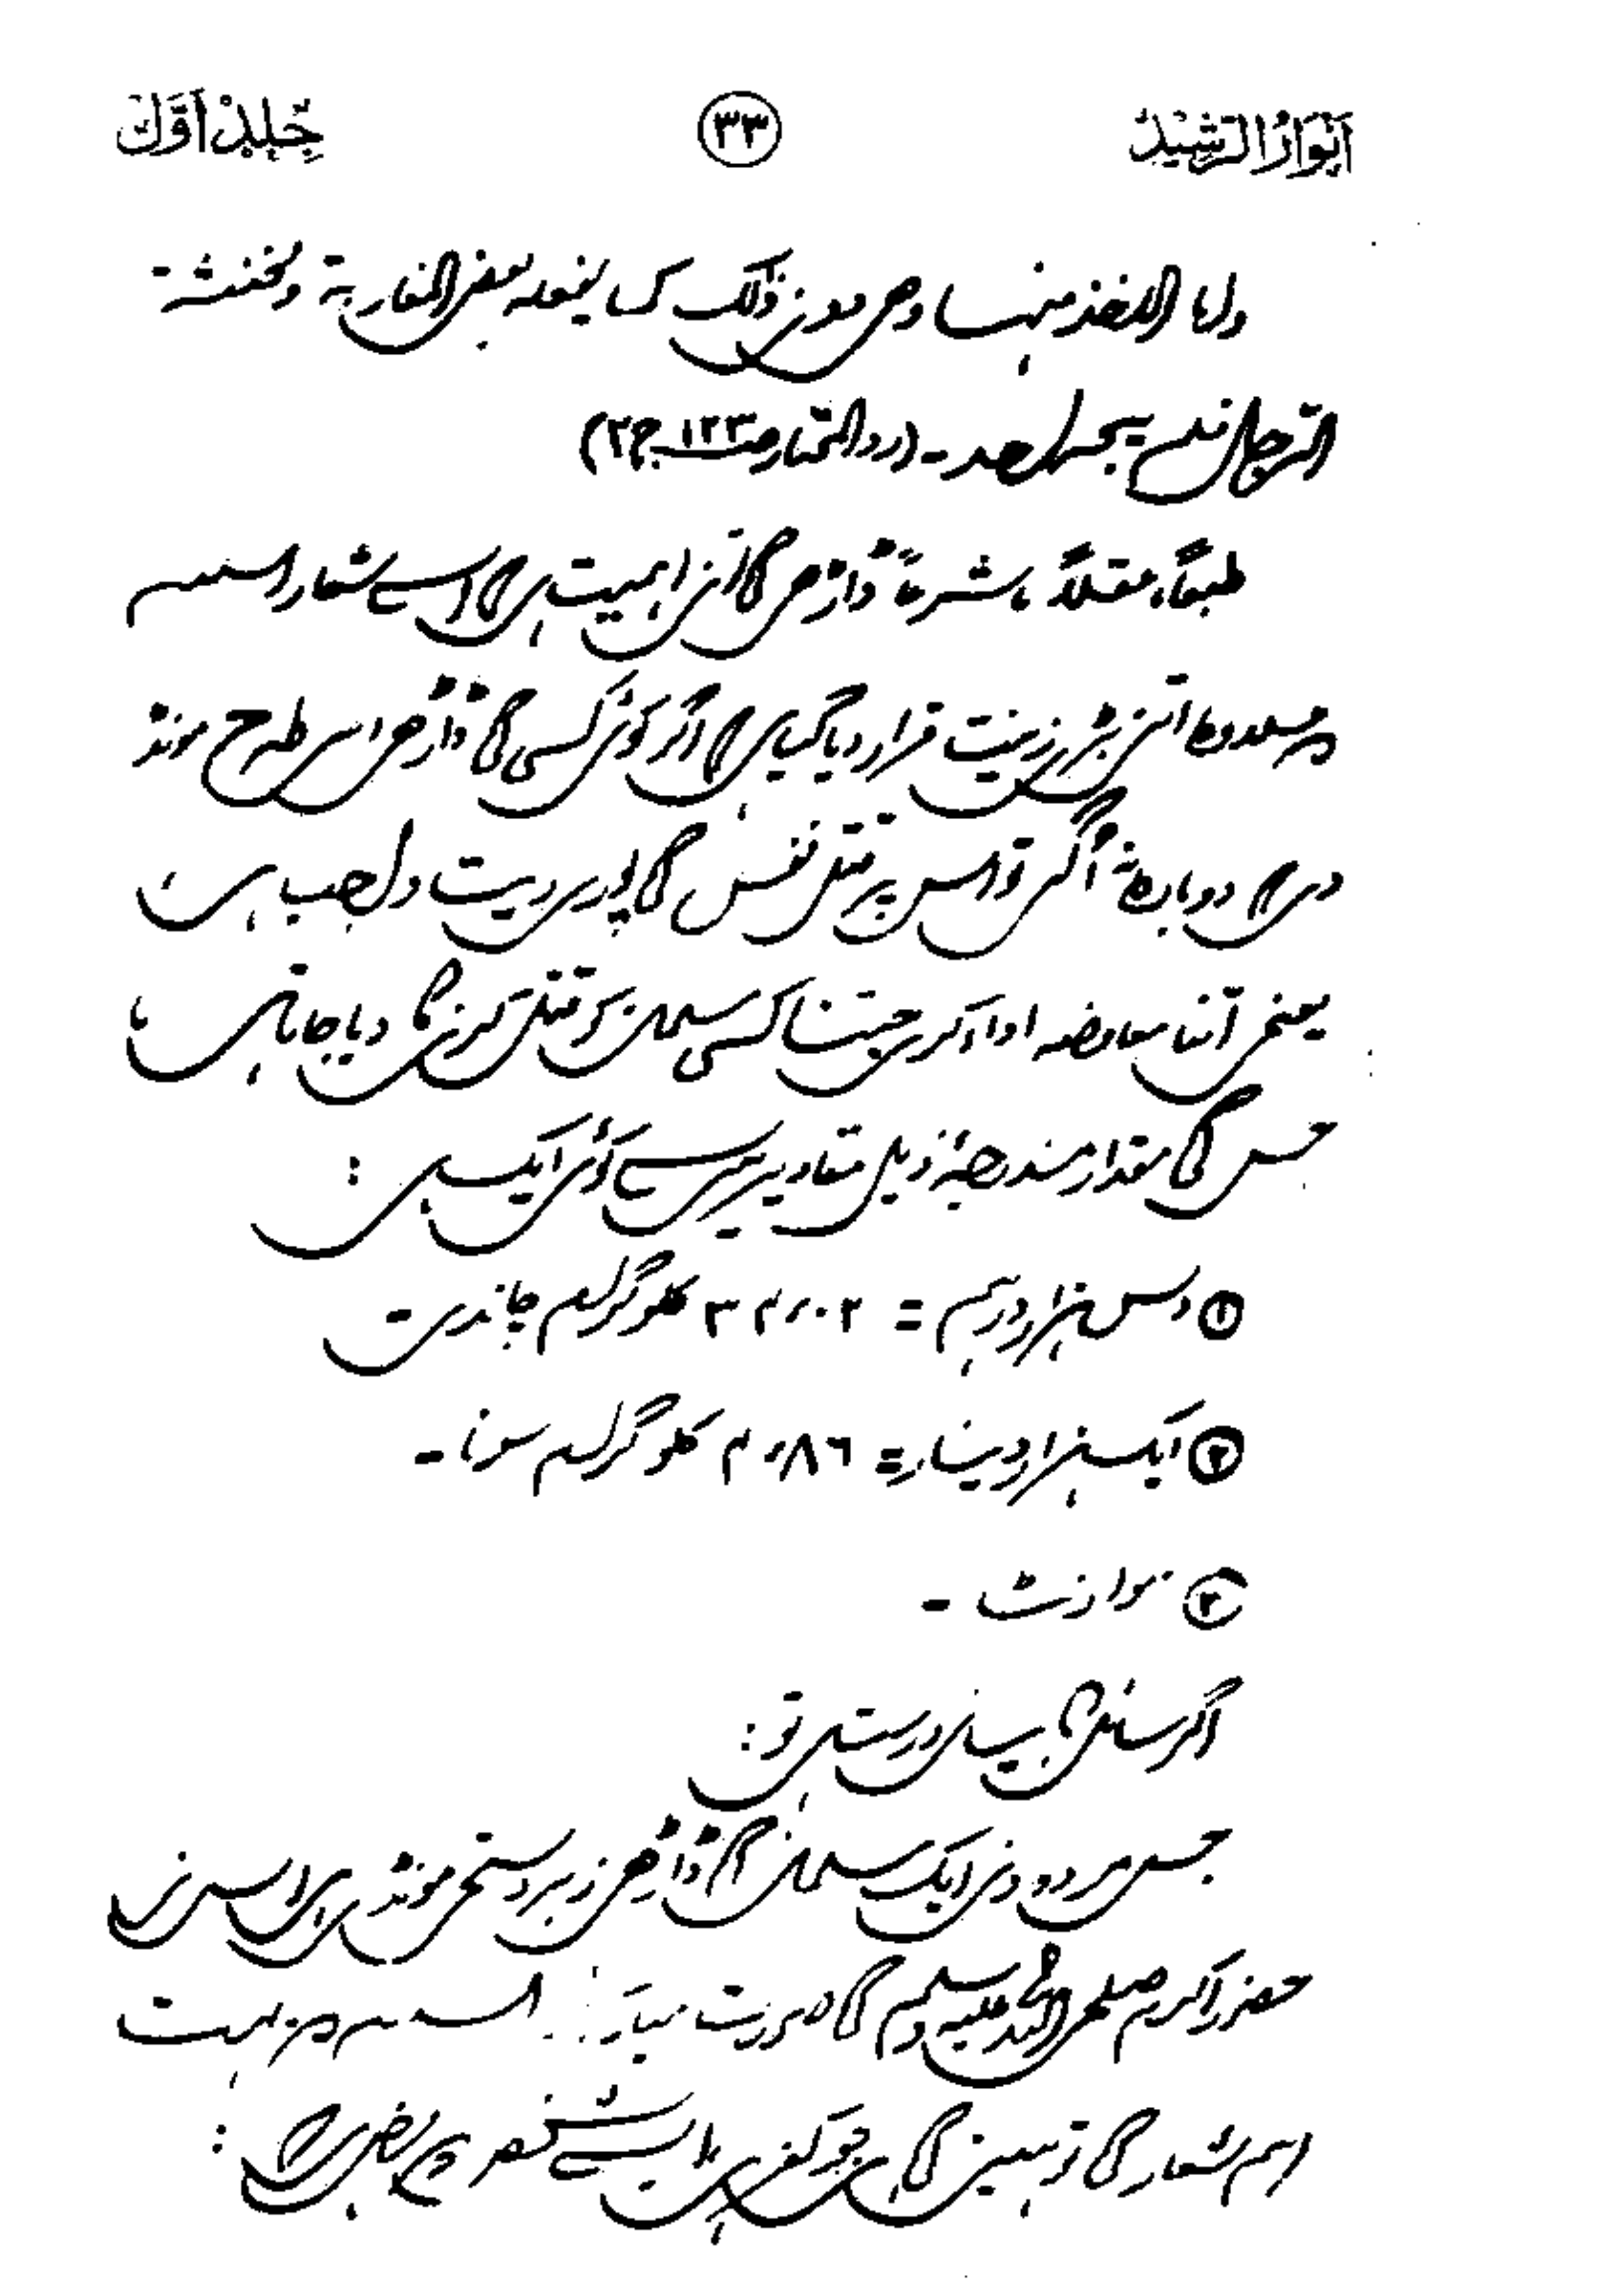 انوار الرشید ۳۳ جلد اول
واما الاخذ منها وهي دون ذلك كما يفعله بعض المغاربة ومخنثة
الرجال فلم يبحه احد ۔ (رد المحتار ص۱۲۳ ج۲)
طبعًا، عقلاً، شرعًا ڈاڑھی کی اتنی اہمیت ہے کہ اسے شعار اسلام
ومسلمون اتنی بڑی زینت قرار دیا گیا ہے کہ اگر کوئی کسی کی ڈاڑھی اس طرح مونڈ
دے کہ دوبارہ نہ اُگے تو اس پر قتل نفس کی پوری دیت واجب ہے،
یعنی اتنا معاوضہ ادا کرے جتنا کسی مسلمان کو قتل کرنے کا دیا جاتا ہے،
جس کی مقدار مندرجۂ ذیل مقادیر میں سے کوئی ایک ہے :
① دس ہزار درہم = ۳۴٫۰۲ کلوگرام چاندی
② ایک ہزار دینار = ۴٫۸۶ کلوگرام سونا ۔
③ سو اونٹ ۔
اگر سائل کا بیان درست ہے تو :
جس مردود نے ایک مسلمان کی ڈاڑھی زبردستی مونڈی ہے اس نے
حضور اکرم صلی اللہ علیہ وسلم کی صورت مبارکہ اسلام بہت
اہم شعار کی توہین کی ہے جو کفر ہے، ایسے شخص پر فرض ہے کہ :